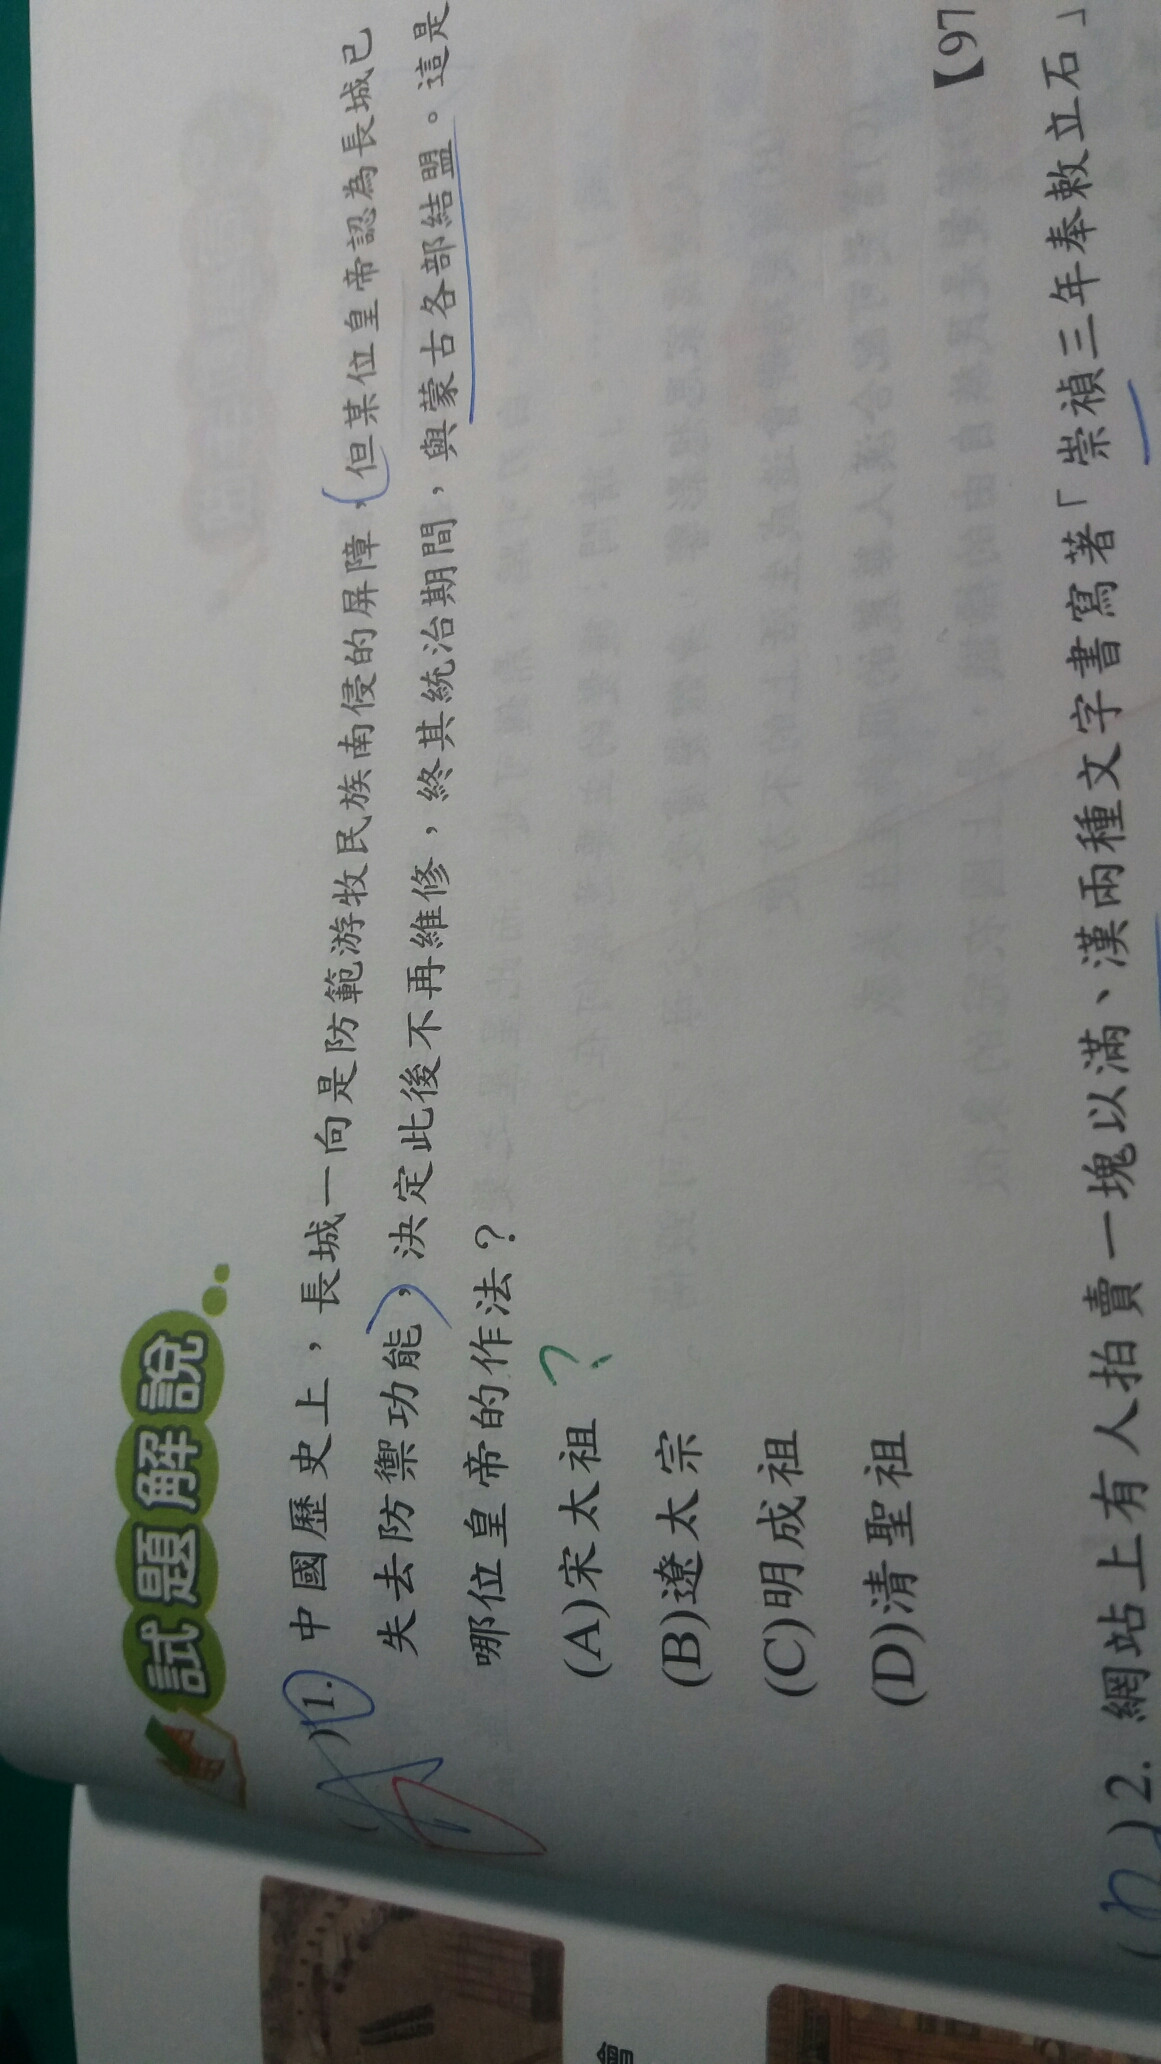 試題解說
)1. 中國歷史上，長城一向是防範游牧民族南侵的屏障，但某位皇帝認為長城已
失去防禦功能，決定此後不再維修，終其統治期間，與蒙古各部結盟。這是
哪位皇帝的作法？
(A)宋太祖 ?
(B)遼太宗
(C)明成祖
(D)清聖祖
【97
)2. 網站上有人拍賣一塊以滿、漢兩種文字書寫著「崇禎三年奉敕立石」
會